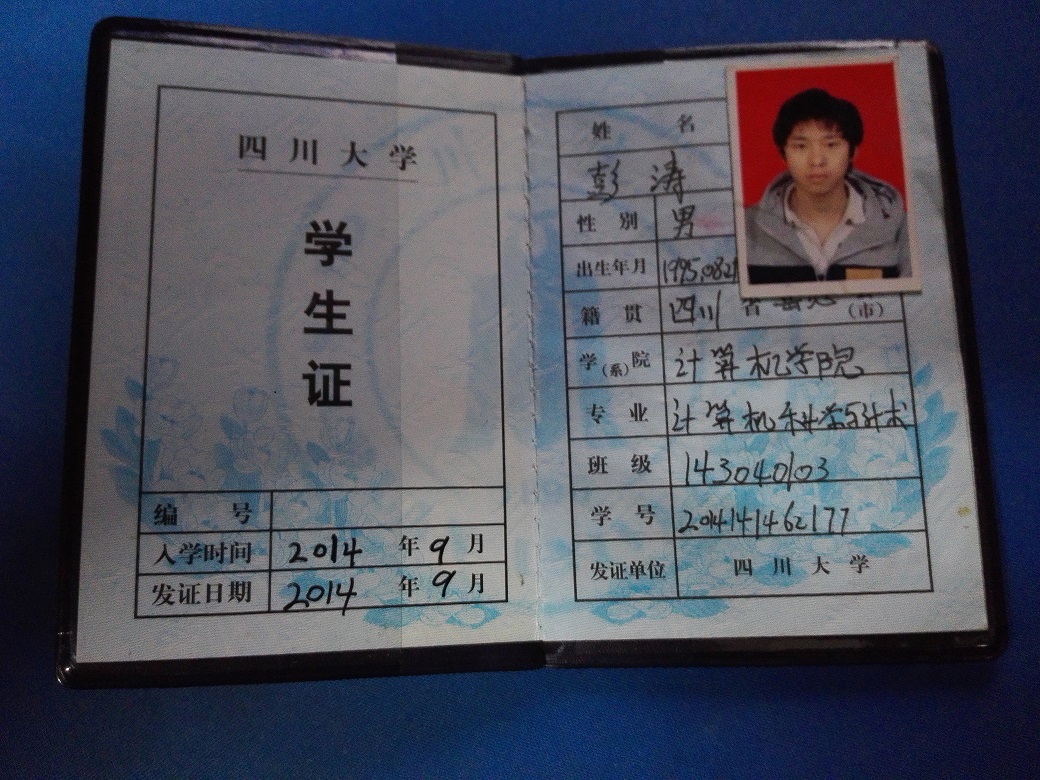 四川大学
学
生
证
编 号
入学时间 2014 年 9 月
发证日期 2014 年 9 月
姓 名
彭涛
性 别 男
出生年月 1995.082
籍 贯 四川 省 (市)
学(系)院 计算机学院
专 业 计算机科学与技术
班 级 143040103
学 号 2014141462177
发证单位 四川大学